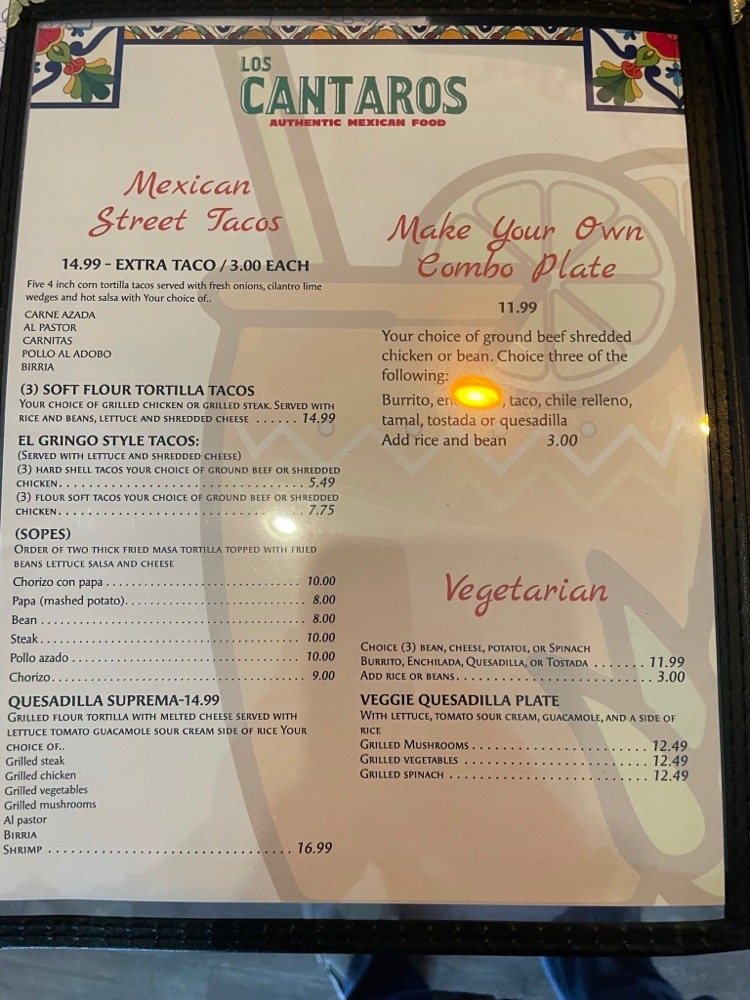 LOS
CANTAROS
AUTHENTIC MEXICAN FOOD
Mexican
Street Tacos
14.99 - EXTRA TACO / 3.00 EACH
Five 4 inch corn tortilla tacos served with fresh onions, cilantro lime
wedges and hot salsa with Your choice of..
CARNE AZADA
AL PASTOR
CARNITAS
POLLO AL ADOBO
BIRRIA
(3) SOFT FLOUR TORTILLA TACOS
YOUR CHOICE OF GRILLED CHICKEN OR GRILLED STEAK. SERVED WITH
RICE AND BEANS, LETTUCE AND SHREDDED CHEESE ...... 14.99
EL GRINGO STYLE TACOS:
(SERVED WITH LETTUCE AND SHREDDED CHEESE)
(3) HARD SHELL TACOS YOUR CHOICE OF GROUND BEEF OR SHREDDED
CHICKEN.................................. 5.49
(3) FLOUR SOFT TACOS YOUR CHOICE OF GROUND BEEF OR SHREDDED
CHICKEN.................................. 7.75
(SOPES)
ORDER OF TWO THICK FRIED MASA TORTILLA TOPPED WITH FRIED
BEANS LETTUCE SALSA AND CHEESE
Chorizo con papa ............................ 10.00
Papa (mashed potato)......................... 8.00
Bean ..................................... 8.00
Steak..................................... 10.00
Pollo azado ................................ 10.00
Chorizo................................... 9.00
QUESADILLA SUPREMA-14.99
GRILLED FLOUR TORTILLA WITH MELTED CHEESE SERVED WITH
LETTUCE TOMATO GUACAMOLE SOUR CREAM SIDE OF RICE YOUR
CHOICE OF..
Grilled steak
Grilled chicken
Grilled vegetables
Grilled mushrooms
Al pastor
BIRRIA
SHRIMP ............................... 16.99
Make Your Own
Combo Plate
11.99
Your choice of ground beef shredded
chicken or bean. Choice three of the
following:
Burrito, , taco, chile relleno,
tamal, tostada or quesadilla
Add rice and bean 3.00
Vegetarian
CHOICE (3) BEAN, CHEESE, POTATOE, OR SPINACH
BURRITO, ENCHILADA, QUESADILLA, OR TOSTADA ....... 11.99
ADD RICE OR BEANS............................ 3.00
VEGGIE QUESADILLA PLATE
WITH LETTUCE, TOMATO SOUR CREAM, GUACAMOLE, AND A SIDE OF
RICE
GRILLED MUSHROOMS ......................... 12.49
GRILLED VEGETABLES .......................... 12.49
GRILLED SPINACH ............................ 12.49